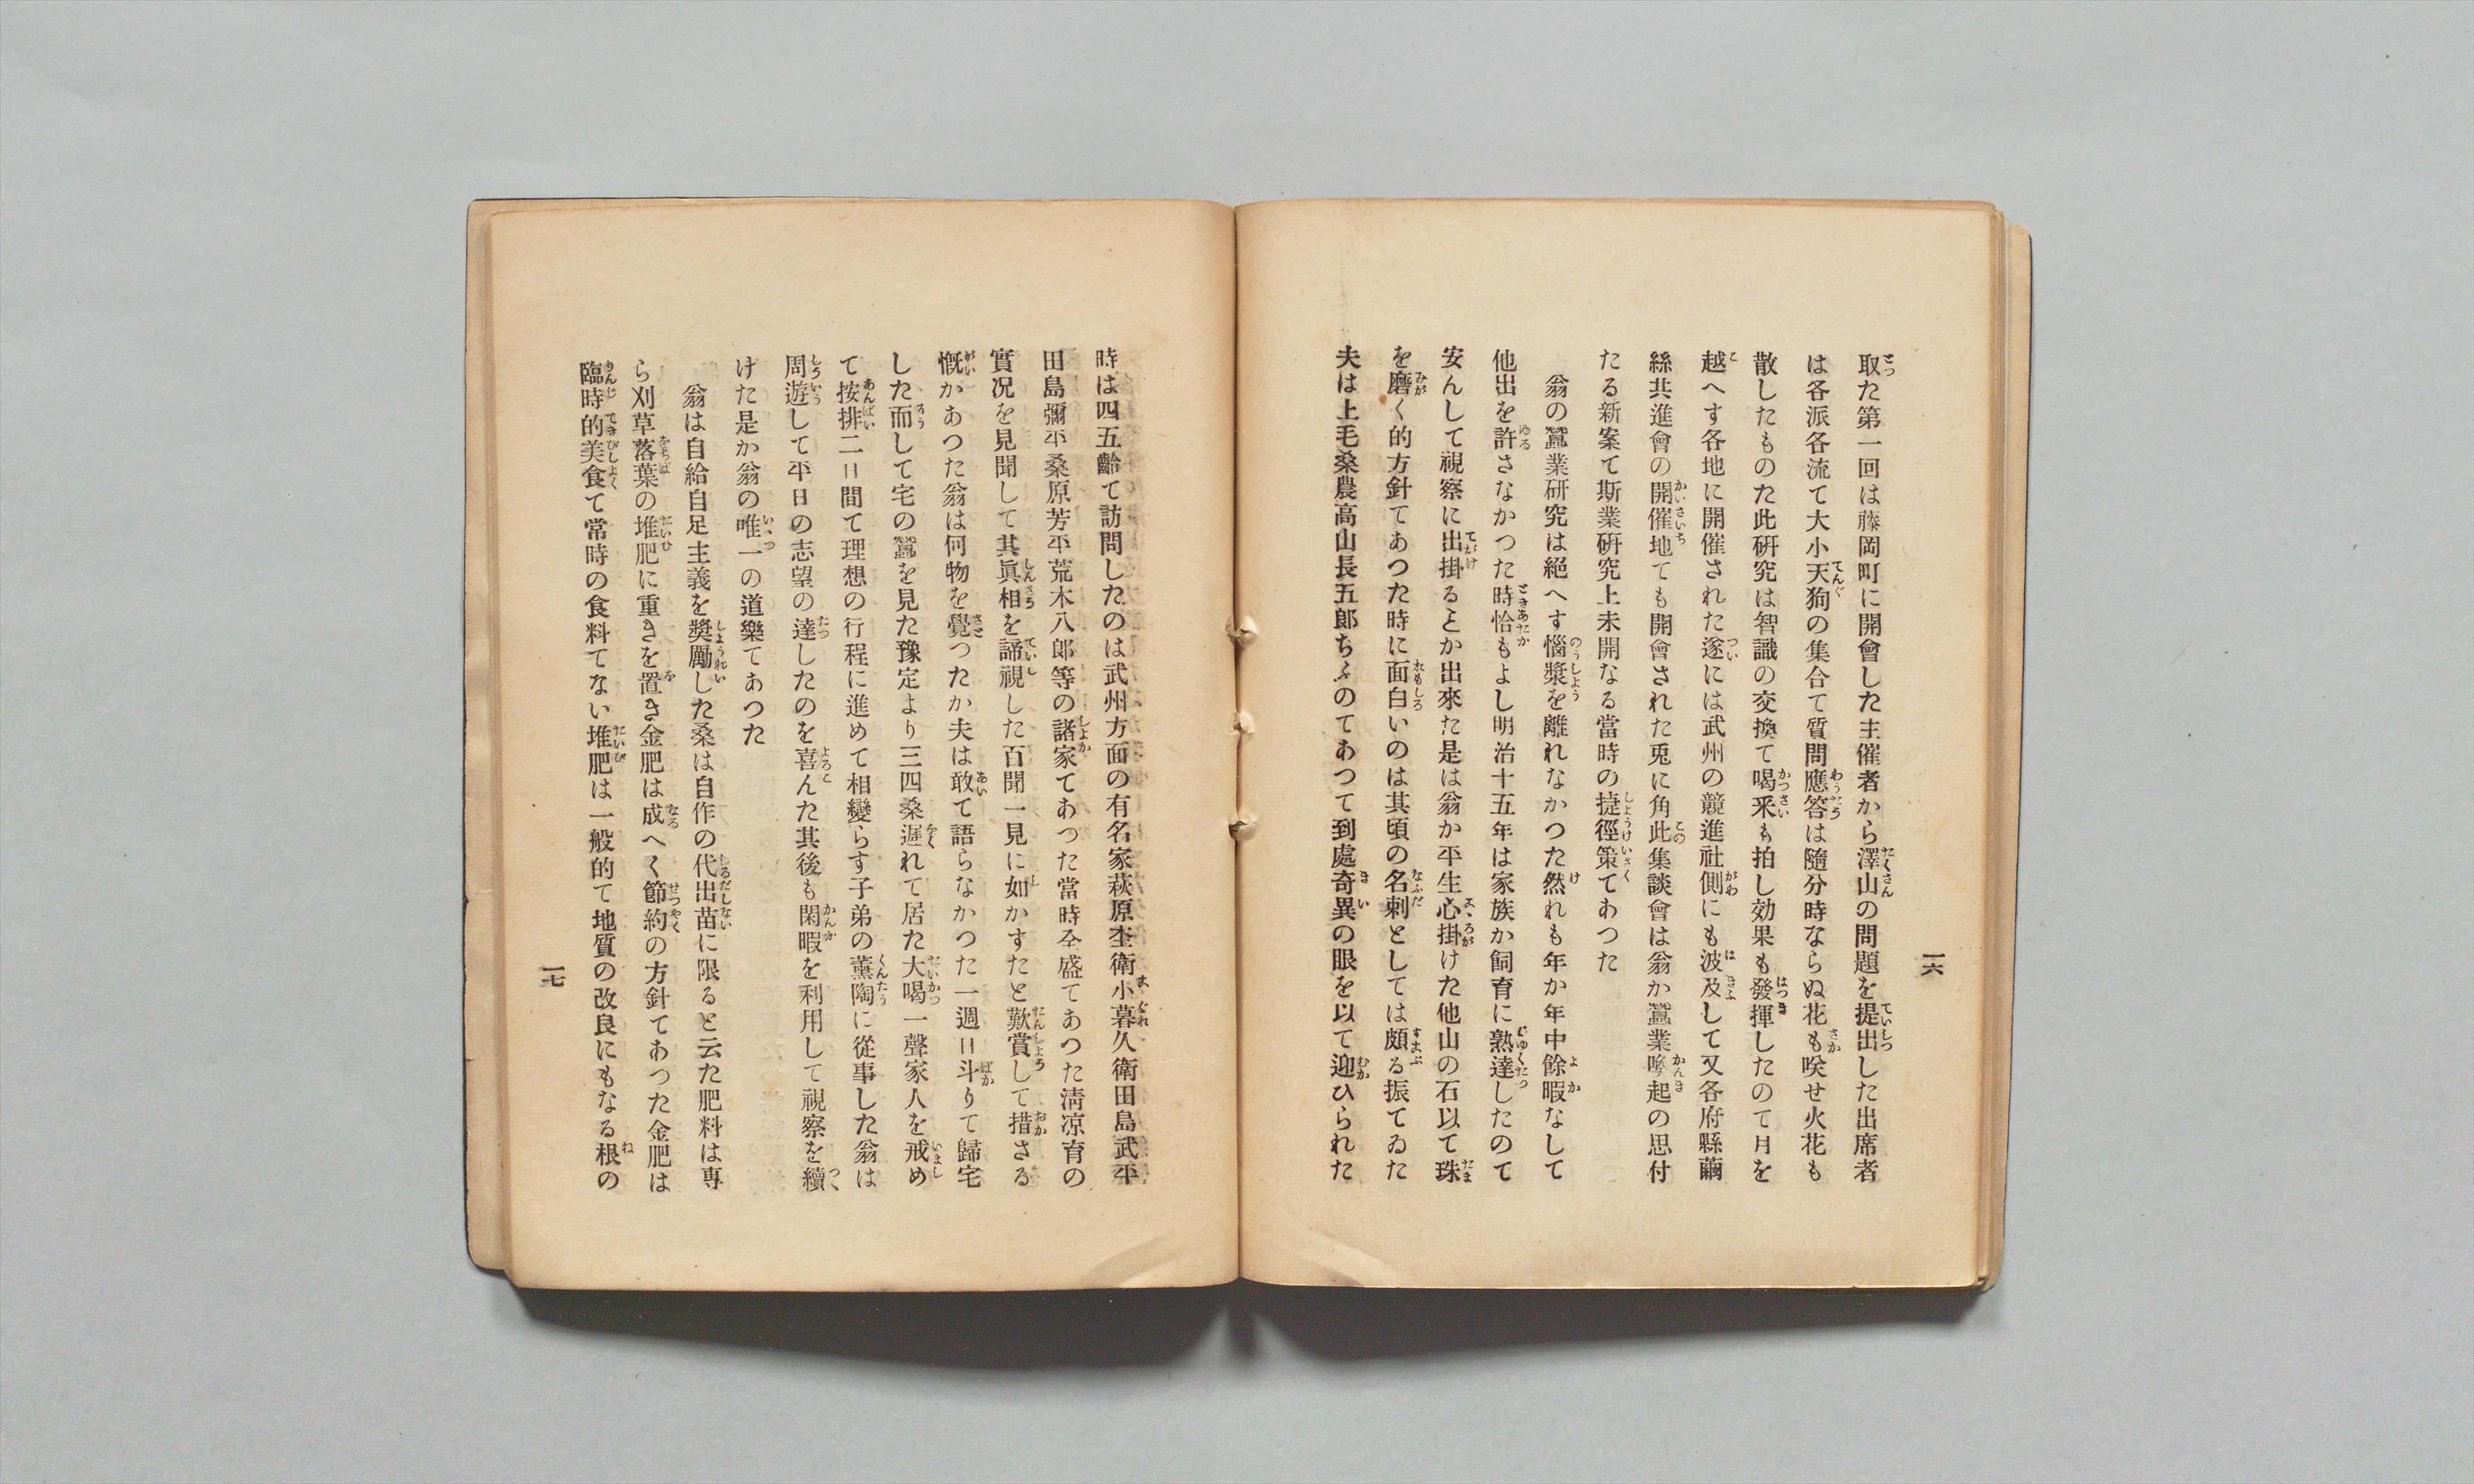 一六
取た第一回は藤岡町に開會した主催者から澤山の問題を提出した出席者
は各派各流て大小天狗の集合て質問應答は隨分時ならぬ花も咲せ火花も
散したものた此硏究は智識の交換て喝釆も拍し効果も發揮したのて月を
越へす各地に開催された遂には武州の競進社側にも波及して又各府縣繭
絲共進會の開催地ても開會された兎に角此集談會は翁か蠶業喚起の思付
たる新案て斯業硏究上未開なる當時の捷徑策てあつた
翁の蠶業硏究は絕へす惱漿を離れなかつた然れも年か年中餘暇なして
他出を許さなかつた時恰もよし明治十五年は家族か飼育に熟達したのて
安んして視察に出掛るとか出來た是は翁か平生心掛けた他山の石以て珠
を磨く的方針てあつた時に面白いのは其頃の名刺としては頗る振てゐた
夫は上毛桑農高山長五郎ちふのてあつて到處奇異の眼を以て迎ひられた
時は四五齡て訪問したのは武州方面の有名家萩原杢衛小暮久衛田島武平
田島彌平桑原芳平荒木八郎等の諸家てあつた當時全盛てあつた淸凉育の
實況を見聞して其眞相を諦視した百聞一見に如かすたと歎賞して措さる
慨かあつた翁は何物を覺つたか夫は敢て語らなかつた一週日斗りて歸宅
した而して宅の蠶を見た豫定より三四桑遲れて居た大喝一聲家人を戒め
て按排二日間て理想の行程に進めて相變らす子弟の薰陶に從事した翁は
周遊して平日の志望の達したのを喜んた其後も閑暇を利用して視察を續
けた是か翁の唯一の道樂てあつた
翁は自給自足主義を奬勵した桑は自作の代出苗に限ると云た肥料は專
ら刈草落葉の堆肥に重きを置き金肥は成へく節約の方針てあつた金肥は
臨時的美食て常時の食料てない堆肥は一般的て地質の改良にもなる根の
一七